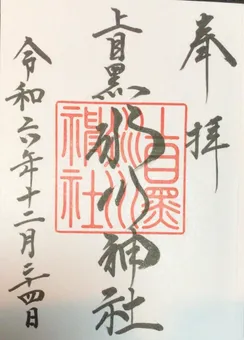 奉拝
上目黒氷川神社
令和六年十二月二十四日
上目黒
氷川
神社